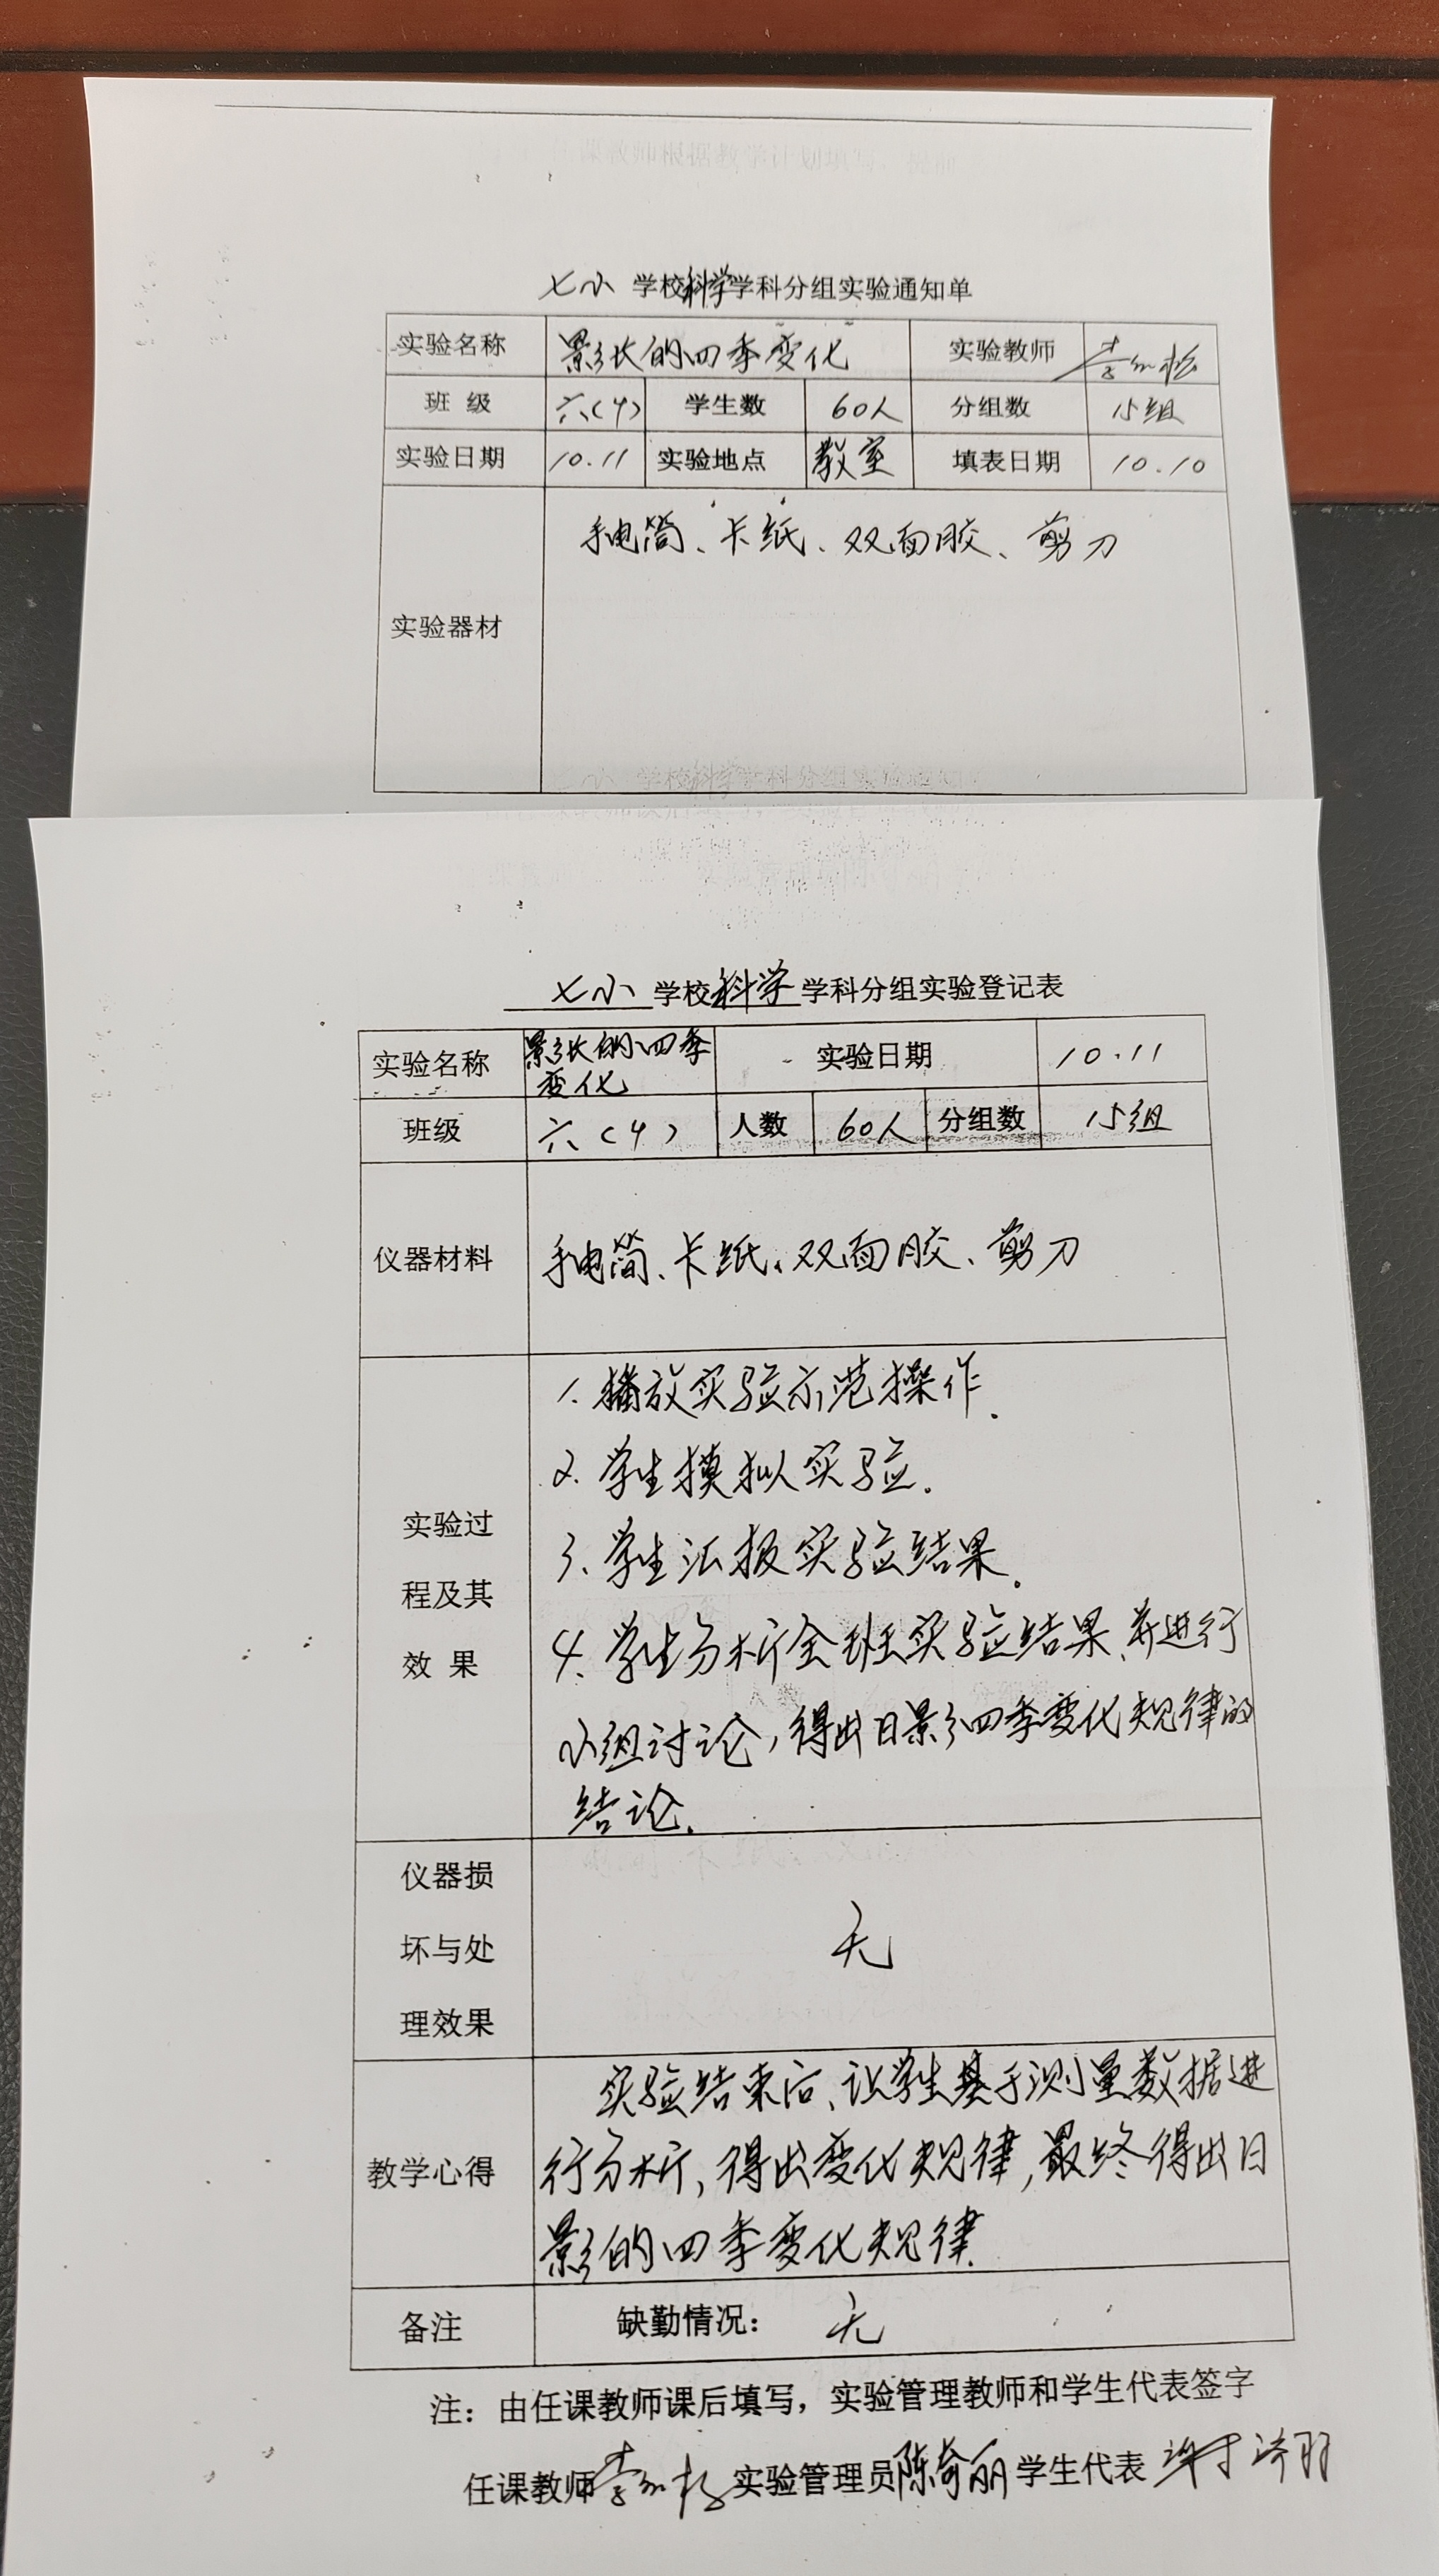 七小 学校科学学科分组实验通知单
实验名称 影长的四季变化 实验教师
班 级 六(4) 学生数 60人 分组数 15组
实验日期 10.11 实验地点 教室 填表日期 10.10
手电筒、卡纸、双面胶、剪刀
实验器材
七小 学校科学 学科分组实验登记表
实验名称 影长的四季变化 实验日期 10.11
班级 六(4) 人数 60人 分组数 15组
仪器材料 手电筒、卡纸、双面胶、剪刀
1.播放实验示范操作.
2.学生模拟实验.
实验过
3.学生汇报实验结果.
程及其
4.学生分析全班实验结果,并进行
效 果
小组讨论,得出日影四季变化规律的
结论.
仪器损
坏与处 无
理效果
实验结束后,让学生基于测量数据进
教学心得 行分析,得出变化规律,最终得出日
影的四季变化规律.
备注 缺勤情况: 无
注:由任课教师课后填写,实验管理教师和学生代表签字
任课教师 实验管理员陈奇丽 学生代表